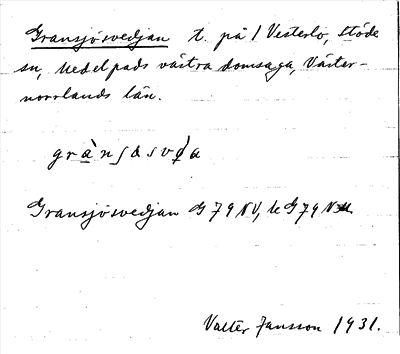 Gransjösvedjan t. på 1 Vesterlo, Stöde
sn, Medelpads västra domsaga, Väster-
norrlands län.
Gransjösvedjan G 79 NV, le G 79 N
Valter Jansson 1931.